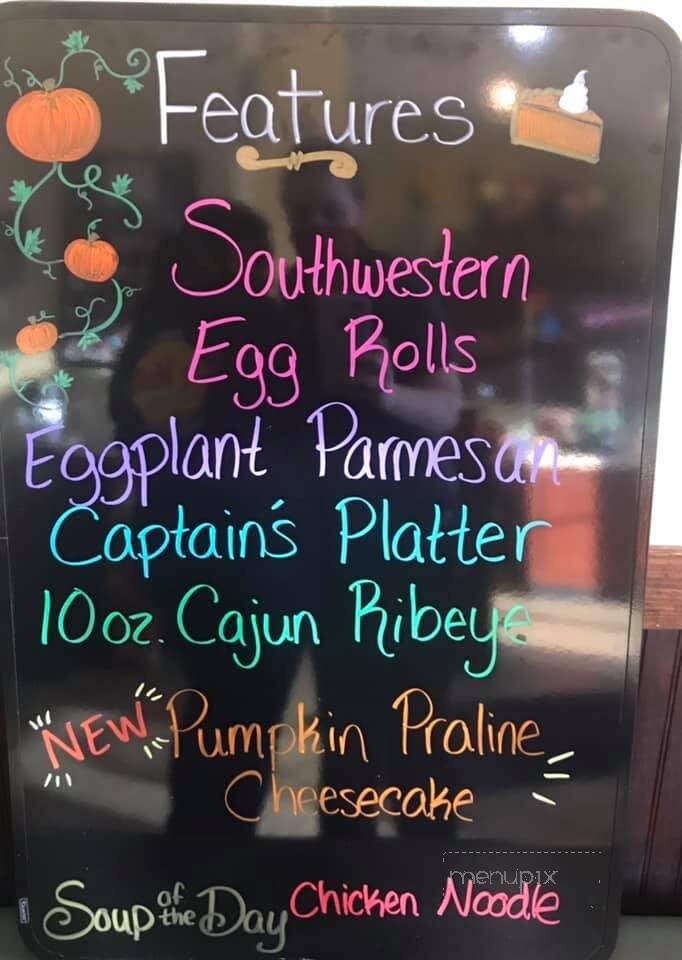 Features
Southwestern
Egg Rolls
Eggplant Parmesan
Captain's Platter
10 oz. Cajun Ribeye
NEW Pumpkin Praline
Cheesecake
Soup of the Day Chicken Noodle
menupix